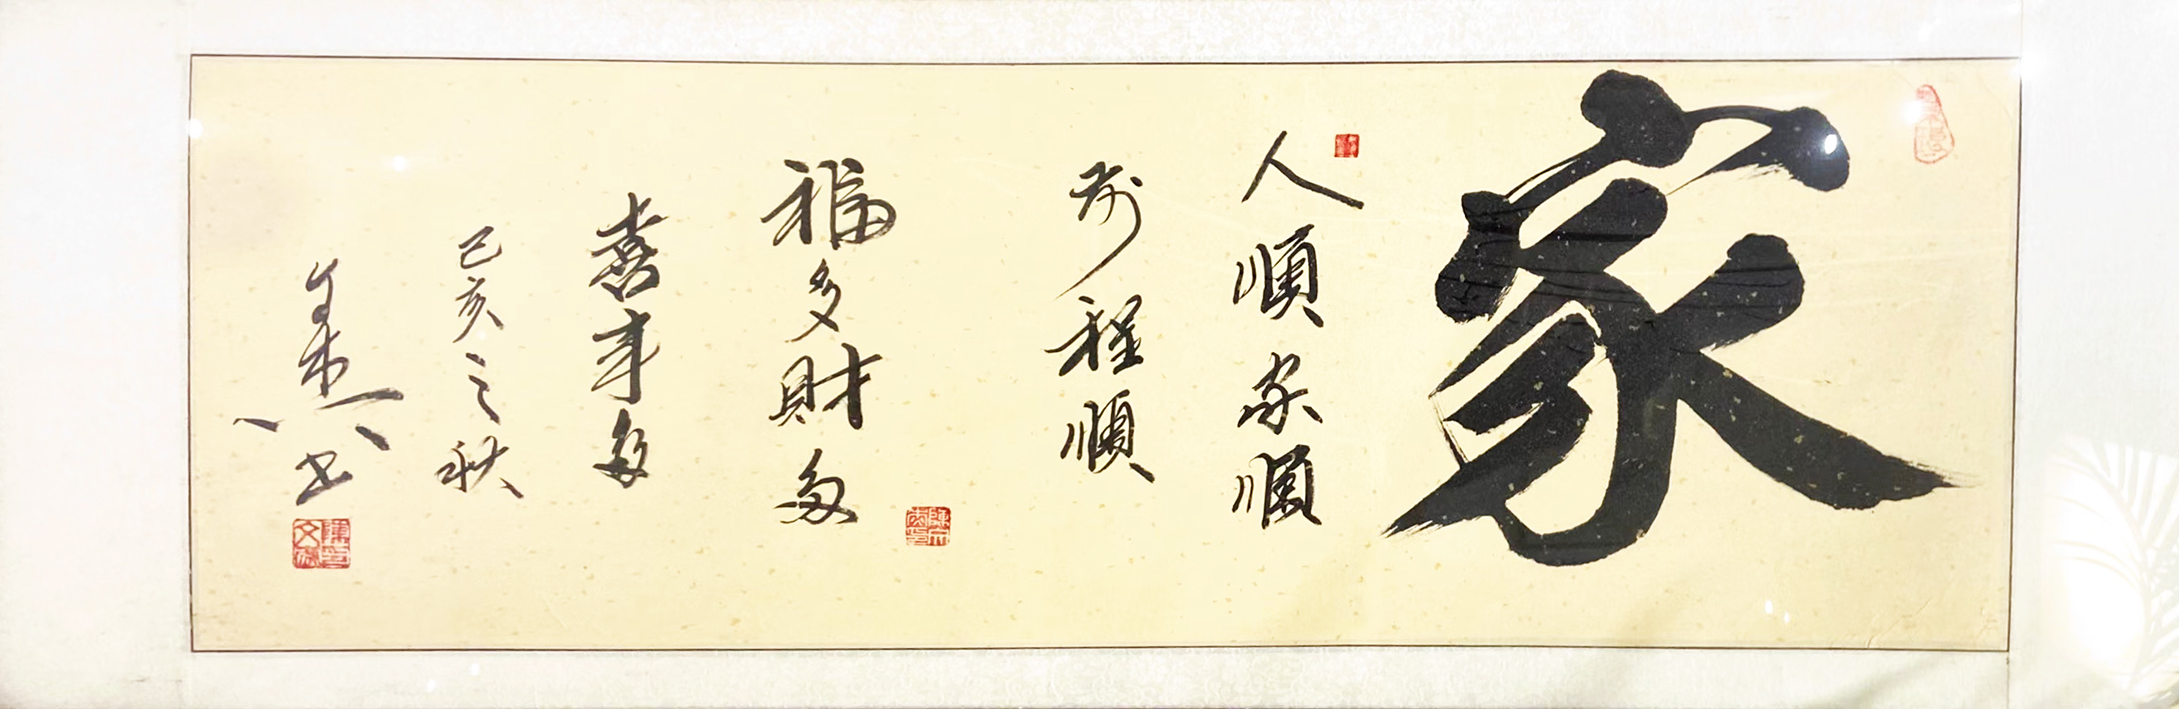 家
人順家順
前程順
福多財多
喜事多
己亥之秋
书